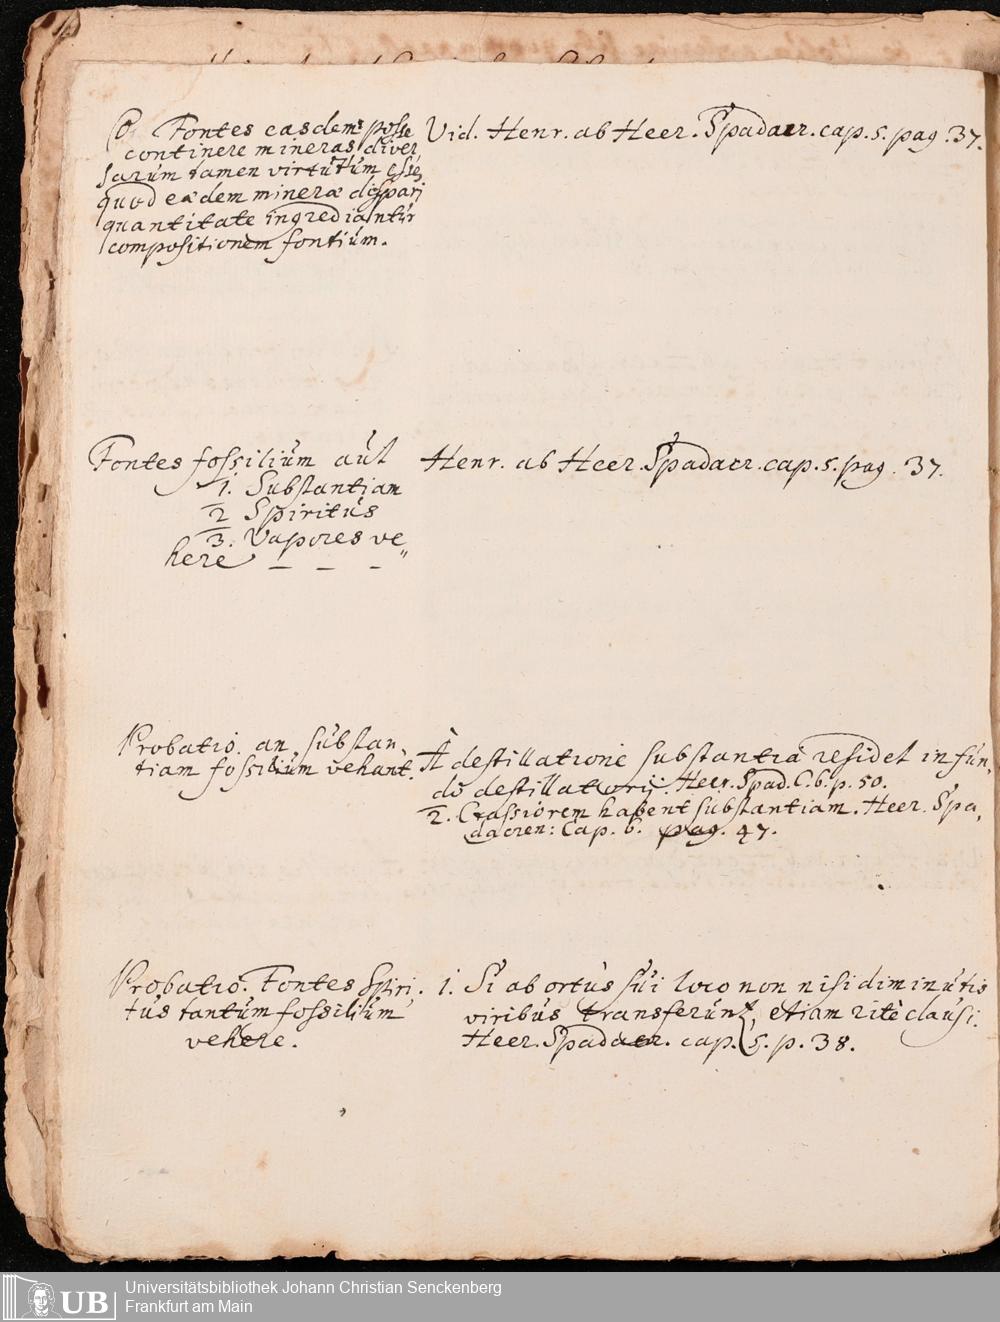 Fontes easdem posse
continere mineras diver
sarum tamen virtutum esse,
quod eædem mineræ dispari
quantitate ingrediantur
compositionem fontium.
Vid. Henr. ab Heer. Spadacr. cap. 5. pag. 37.
Fontes fossilium aut
1. Substantiam
2 Spiritus
3. Vapores ve
here _ _ _ "
Henr. ab Heer. Spadacr. cap. 5. pag. 37.
Probatio. an substan,
tiam fossilium vehant.
A destillatione substantia residet in fun,
do destillatorij. Heer. Spad. C. 6. p. 50.
2. Crassiorem habent substantiam. Heer. Spa,
dacren: Cap. 6. pag. 47.
Probatio. Fontes Spiri.
tus tantum fossilium
vehere.
1. Si ab ortus sui loco non nisi diminutis
viribus transferunt, etiam ritè clausi.
Heer. Spadacr. cap. 5. p. 38.
UB
Universitätsbibliothek Johann Christian Senckenberg
Frankfurt am Main